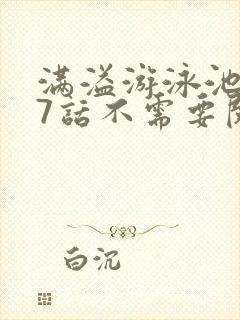 满溢游泳池
7話不需要
白沉